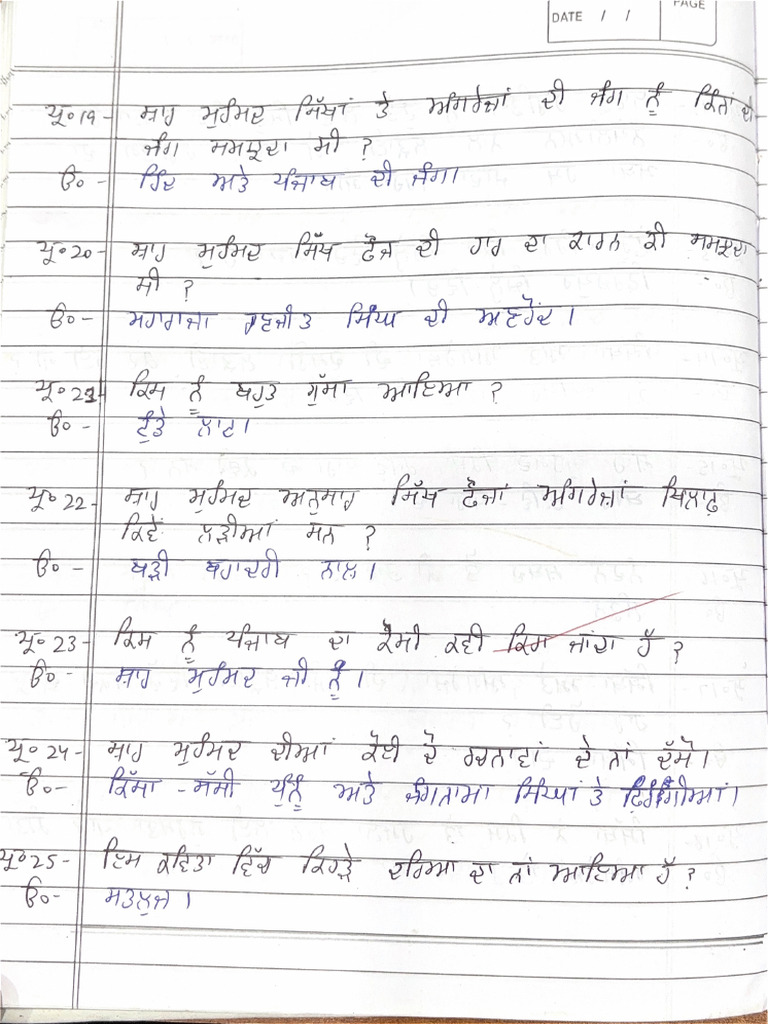 PAGE
DATE / /
ਪ੍ਰ੦19- ਸ਼ਾਹ ਮੁਹੰਮਦ ਸਿੱਖਾਂ ਤੇ ਅੰਗਰੇਜ਼ਾਂ ਦੀ ਜੰਗ ਨੂੰ ਕਿੰਨਾਂ ਦੀ
ਜੰਗ ਸਮਝਦਾ ਸੀ ?
ਉ੦- ਹਿੰਦ ਅਤੇ ਪੰਜਾਬ ਦੀ ਜੰਗ।
ਪ੍ਰ੦20- ਸ਼ਾਹ ਮੁਹੰਮਦ ਸਿੱਖ ਫ਼ੌਜ ਦੀ ਹਾਰ ਦਾ ਕਾਰਨ ਕੀ ਸਮਝਦਾ
ਸੀ ?
ਉ੦- ਮਹਾਰਾਜਾ ਰਣਜੀਤ ਸਿੰਘ ਦੀ ਅਣਹੋਂਦ।
ਪ੍ਰ੦21- ਕਿਸ ਨੂੰ ਬਹੁਤ ਗੁੱਸਾ ਆਇਆ ?
ਉ੦- ਟੁੰਡੇ ਲਾਟ।
ਪ੍ਰ੦22- ਸ਼ਾਹ ਮੁਹੰਮਦ ਅਨੁਸਾਰ ਸਿੱਖ ਫ਼ੌਜਾਂ ਅੰਗਰੇਜ਼ਾਂ ਖਿਲਾਫ਼
ਕਿਵੇਂ ਲੜੀਆਂ ਸਨ ?
ਉ੦- ਬੜੀ ਬਹਾਦਰੀ ਨਾਲ।
ਪ੍ਰ੦23- ਕਿਸ ਨੂੰ ਪੰਜਾਬ ਦਾ ਕੌਮੀ ਕਵੀ ਕਿਹਾ ਜਾਂਦਾ ਹੈ ?
ਉ੦- ਸ਼ਾਹ ਮੁਹੰਮਦ ਜੀ ਨੂੰ।
ਪ੍ਰ੦24- ਸ਼ਾਹ ਮੁਹੰਮਦ ਦੀਆਂ ਕੋਈ ਦੋ ਰਚਨਾਵਾਂ ਦੇ ਨਾਂ ਦੱਸੋ।
ਉ੦- ਕਿੱਸਾ - ਸੱਸੀ ਪੁੰਨੂੰ ਅਤੇ ਜੰਗਨਾਮਾ ਸਿੰਘਾਂ ਤੇ ਫ਼ਿਰੰਗੀਆਂ।
ਪ੍ਰ੦25- ਇਸ ਕਵਿਤਾ ਵਿੱਚ ਕਿਹੜੇ ਦਰਿਆ ਦਾ ਨਾਂ ਆਇਆ ਹੈ ?
ਉ੦- ਸਤਲੁਜ।